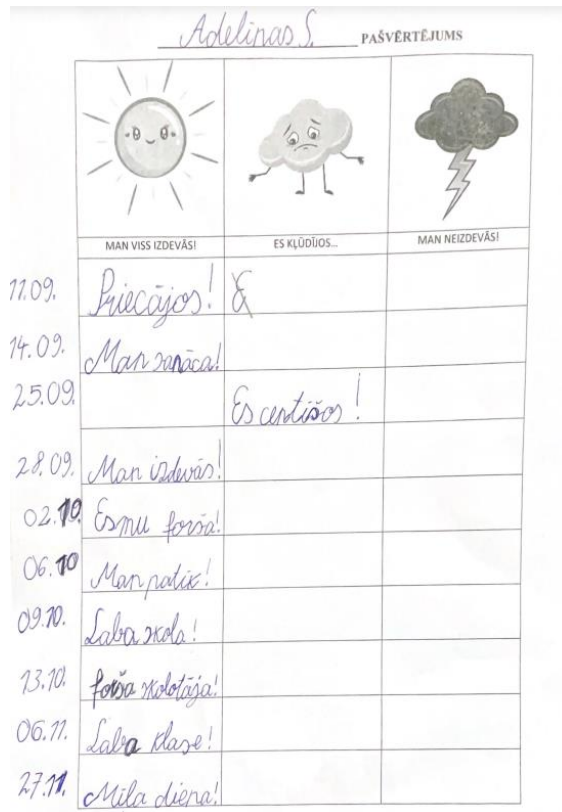 Adelinas S. PAŠVĒRTĒJUMS
MAN VISS IZDEVĀS! ES KĻŪDĪJOS... MAN NEIZDEVĀS!
11.09. Priecājos! E
14.09. Man sanāca!
25.09. Es centīšos!
28.09. Man izdevās!
02.10. Esmu forša!
06.10 Man patik!
09.10. Laba skola!
13.10. forša skolotāja!
06.11. Laba klase!
27.11. Mīla diena!